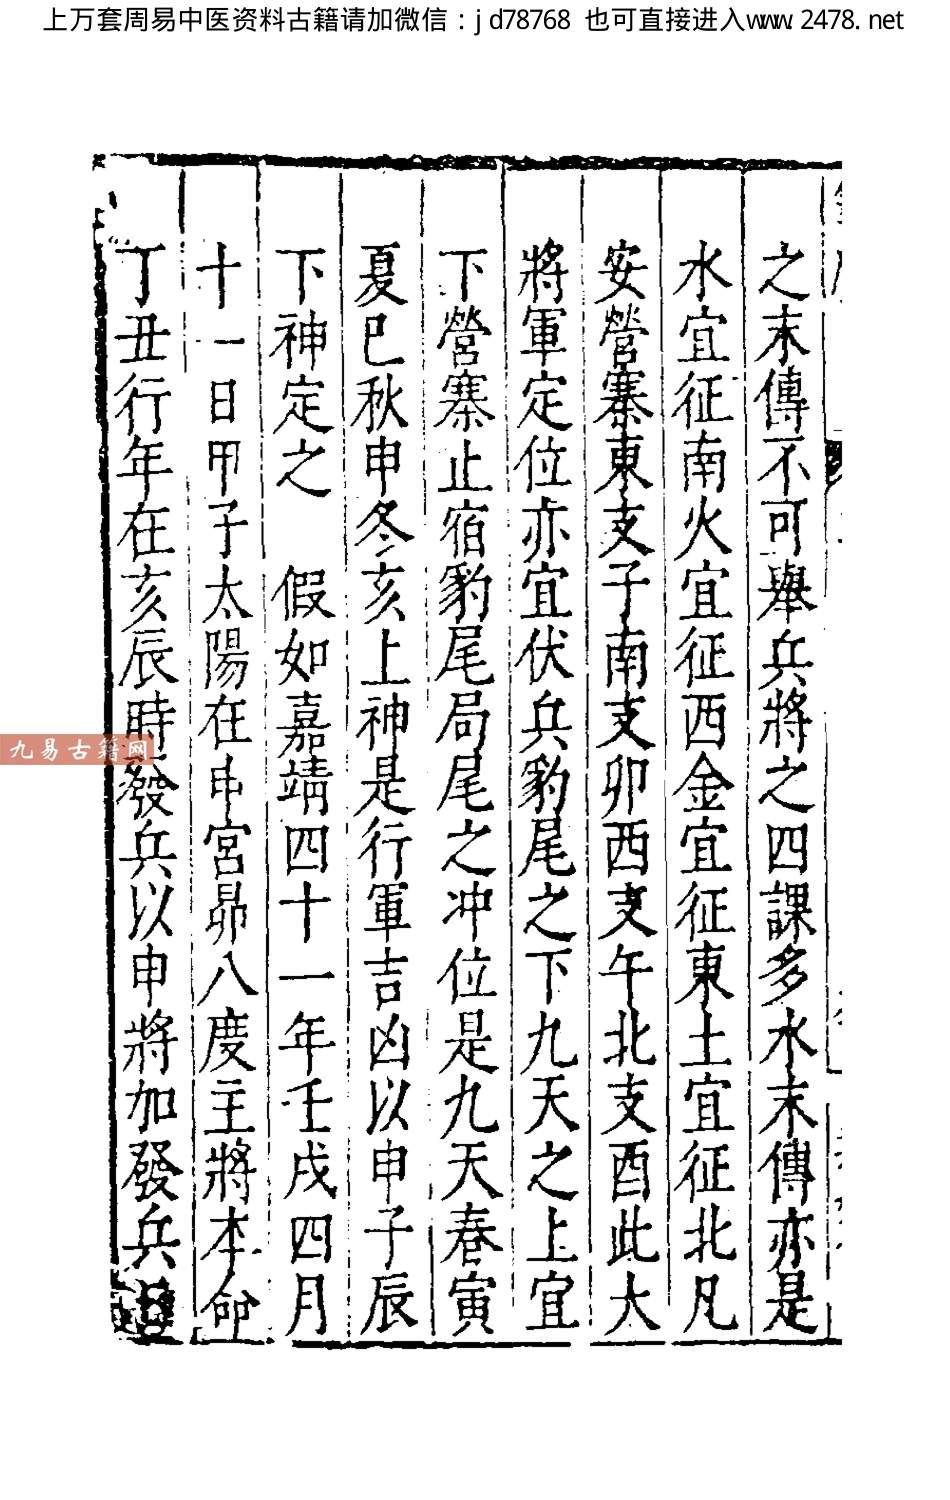 上万套周易中医资料古籍请加微信：jd78768 也可直接进入www.2478.net
之末傳不可舉兵將之四課多水末傳亦是
水宜征南火宜征西金宜征東土宜征北凡
安營寨東支子南支卯西支午北支酉此大
將軍定位亦宜伏兵豹尾之下九天之上宜
下營寨止宿豹尾局尾之冲位是九天春寅
夏巳秋申冬亥上神是行軍吉凶以申子辰
下神定之 假如嘉靖四十一年壬戌四月
十一日甲子太陽在申宮昴八度主將本命
丁丑行年在亥辰時發兵以申將加發兵
九易古籍网